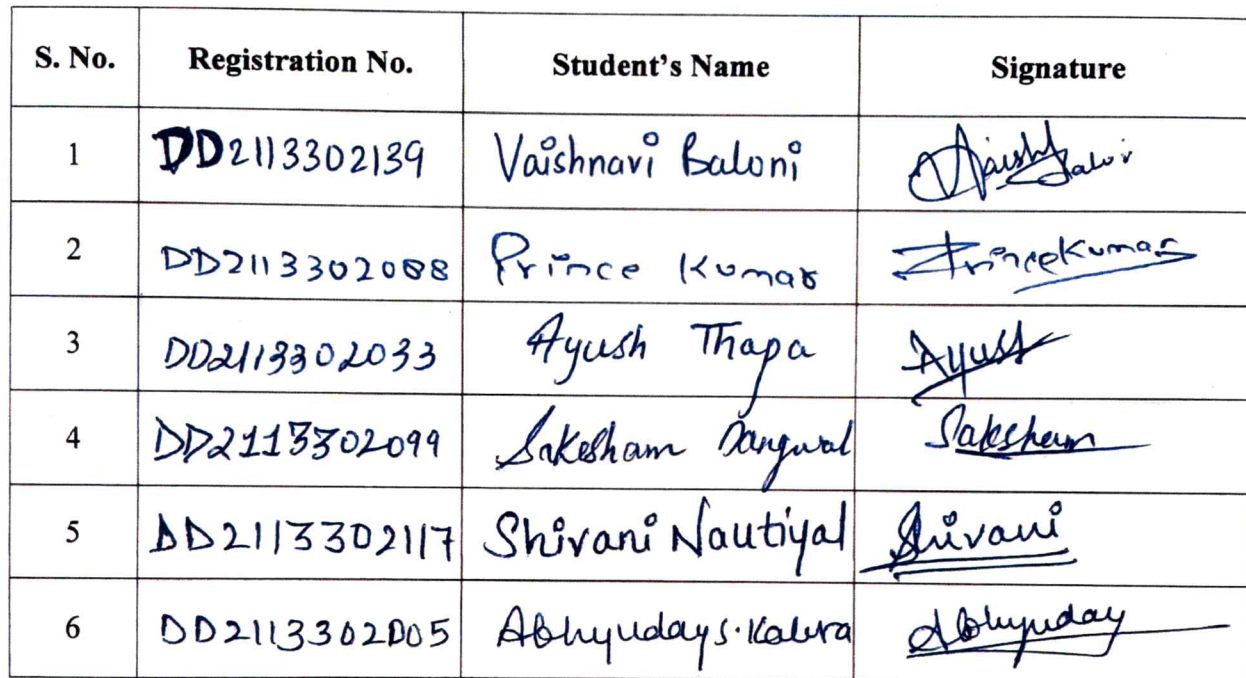 S. No. Registration No. Student's Name Signature
1 DD2113302139 Vaishnavi Baloni
2 DD2113302088 Prince Kumar Prince Kumar
3 DD2113302033 Ayush Thapa Ayush
4 DD2113302099 Sakesham Dangwal Saksham
5 DD2113302117 Shivani Nautiyal Shivani
6 DD2113302005 Abhyuday S. Kalura Abhyuday